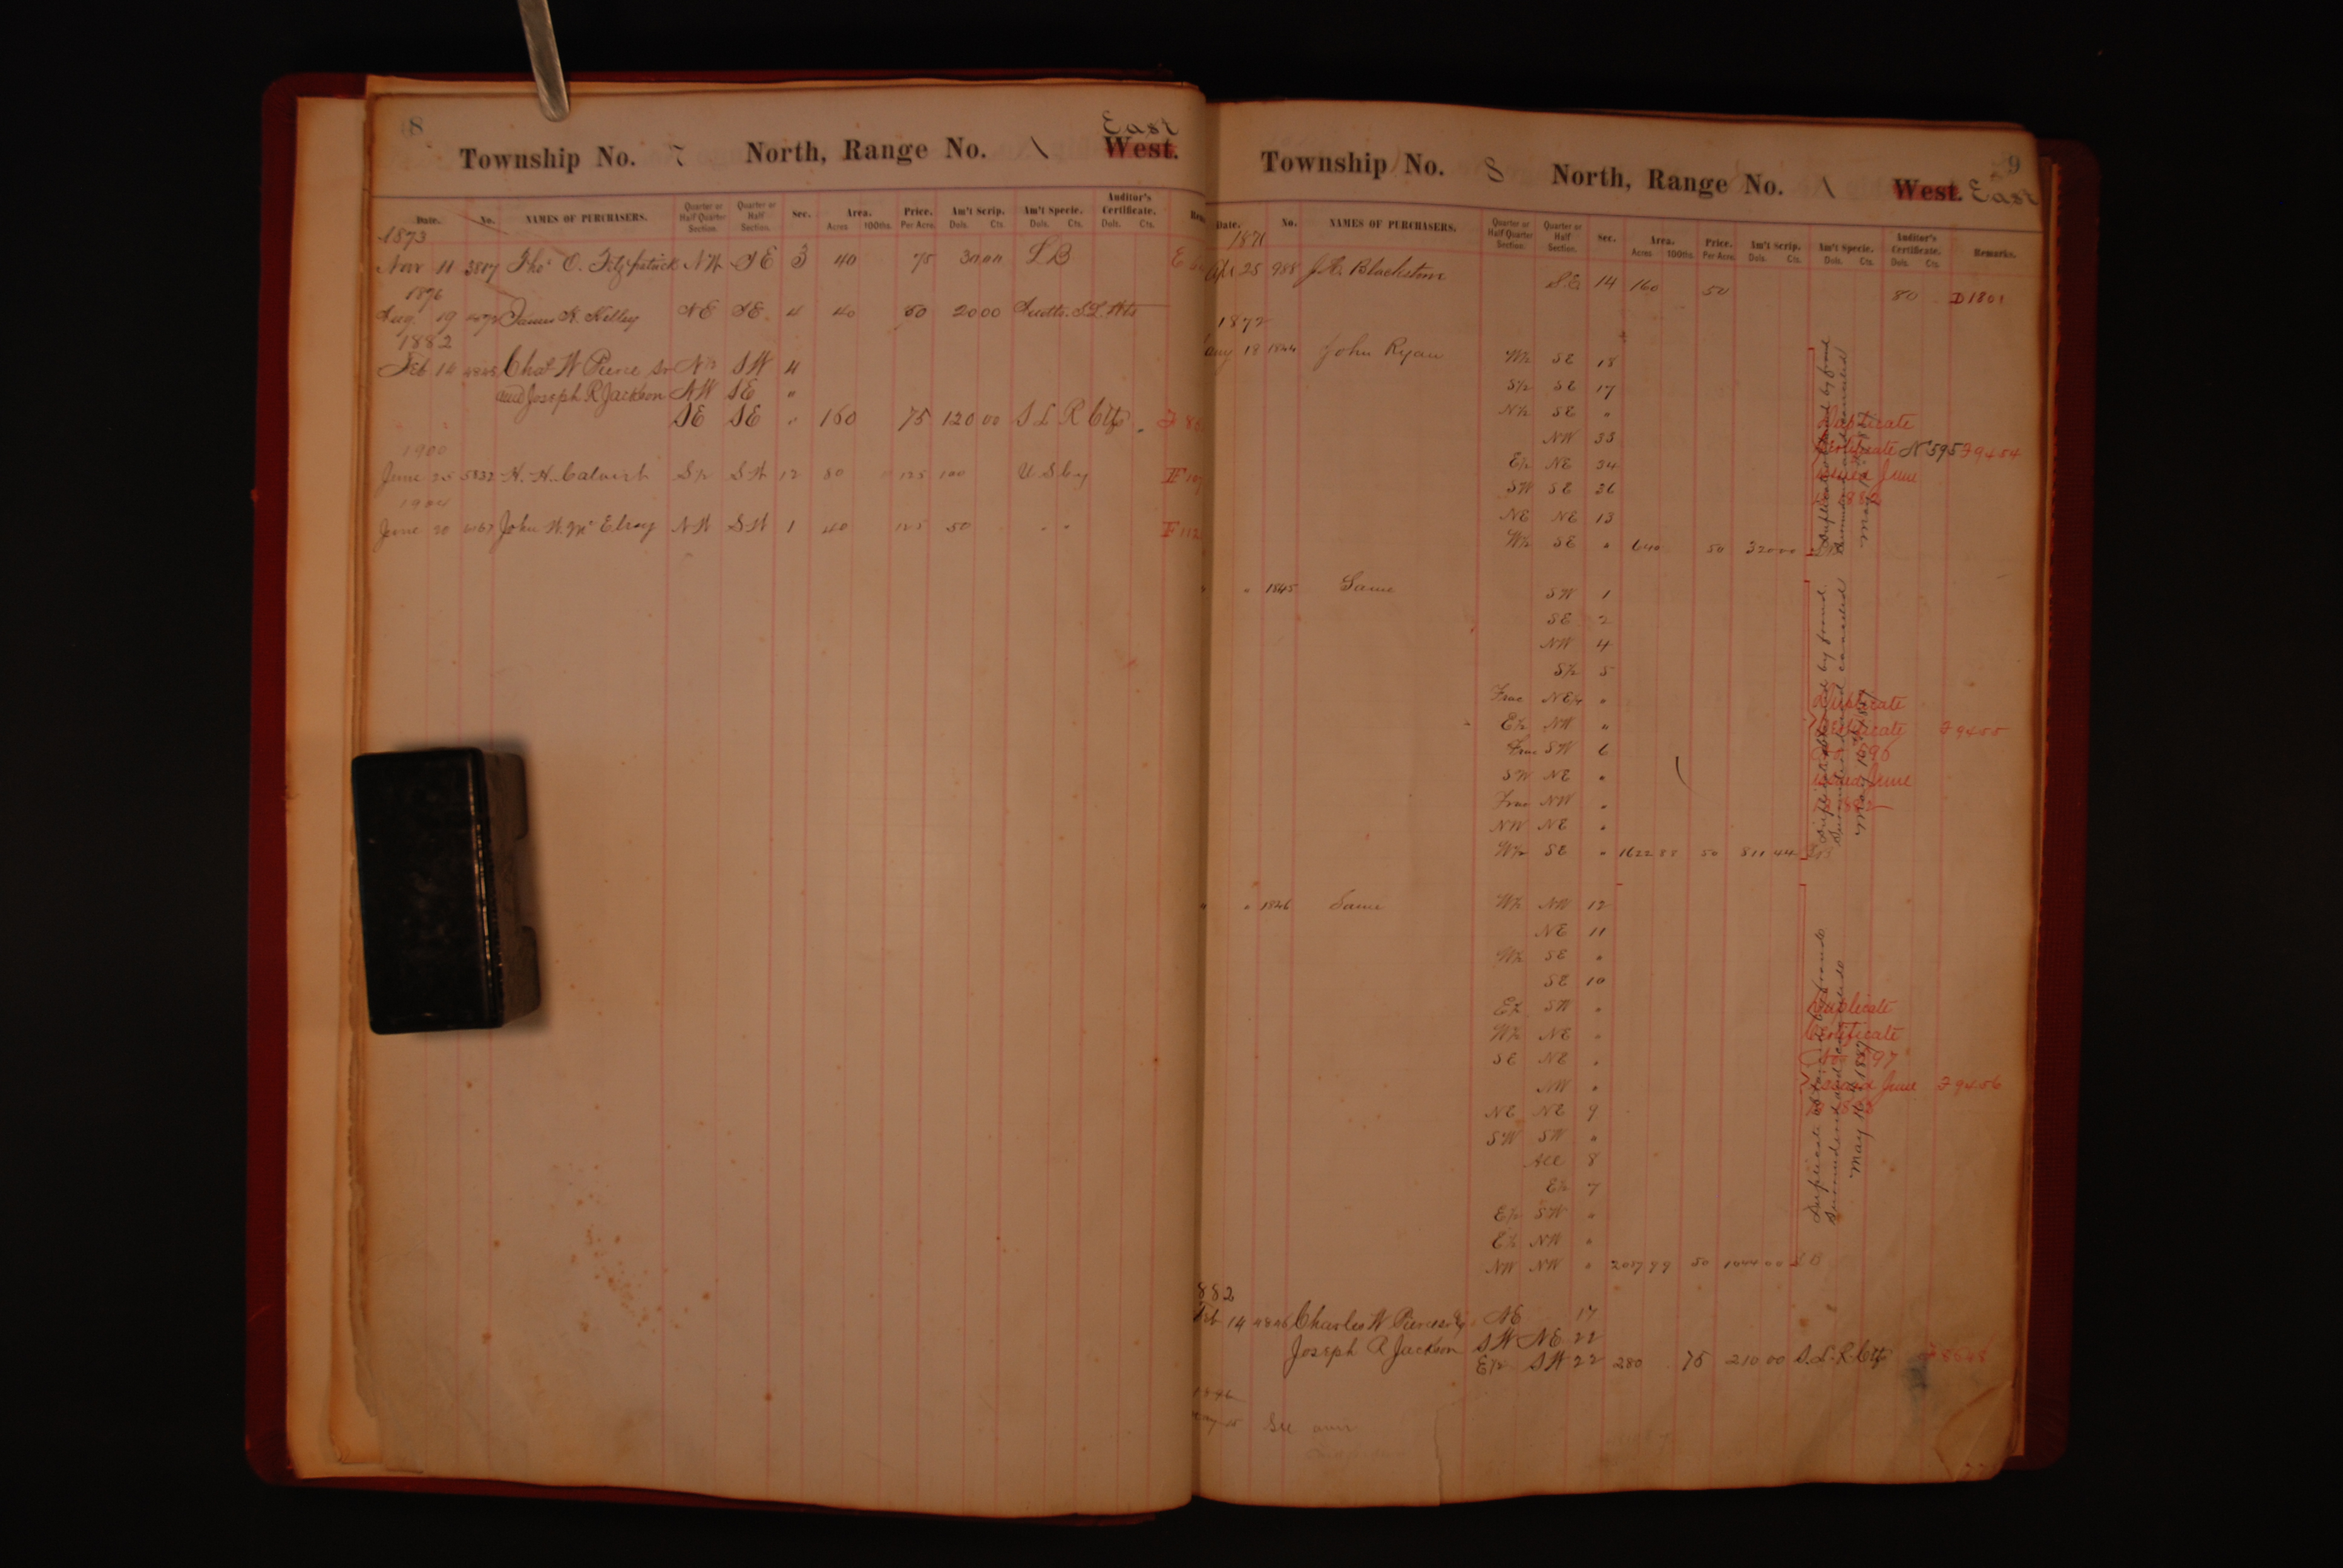 8
East
Township No. 7 North, Range No. 1 West.
Date. No. NAMES OF PURCHASERS. Quarter or Half Quarter Section. Quarter or Half Section. Sec. Area. Acres 100ths. Price. Per Acre. Am't Scrip. Dols. Cts. Am't Specie. Dols. Cts. Auditor's Certificate. Dols. Cts.
1873
Nov 11 3807 Thos O. Fitzpatrick NW SE 3 40 75 30 00 S B
1876
Aug. 19 James K. Kelley NE SE 4 40 50 20 00
1882
Feb 14 4845 Chas W Pierce Sr N½ SW 4
and Joseph R Jackson NW SE "
SE SE " 160 75 120 00 S L R Ctfs
1900
June 25 5832 H. H. Calvert S½ SW 12 80 125 100
1904
June 20 John W. Mc Elroy NW SW 1 40 125 50 " "
9
Township No. 8 North, Range No. 1 West. East
Date. No. NAMES OF PURCHASERS. Quarter or Half Quarter Section. Quarter or Half Section. Sec. Area. Acres 100ths. Price. Per Acre. Am't Scrip. Dols. Cts. Am't Specie. Dols. Cts. Auditor's Certificate. Dols. Cts. Remarks.
1871
25 988 Blackstone SE 14 160 50 80 D 1801
1872
18 1844 John Ryan W½ SE 18
S½ SE 17
N½ SE "
NW 33
E½ NE 34
SW SE 36
NE NE 13
W½ SE " 640 50 320 00
Duplicate
Certificate No 595 F 9454
issued June
1882
" " 1845 Same SW 1
SE 2
NW 4
S½ 5
Frac NE¼ "
E½ NW "
Frac SW 6
SW NE "
Frac NW "
NW NE "
W½ SE " 1622 88 50 811 44
Duplicate
Certificate F 9455
596
issued June
Duplicate by found
Surrendered and canceled
May 16th 1887
" " 1846 Same W½ NW 12
NE 11
W½ SE "
SE 10
E½ SW "
W½ NE "
SE NE "
NW "
NE NE 9
SW SW "
All 8
E½ 7
E½ SW "
E½ NW "
NW NW " 50 S B
Duplicate
Certificate
No 597
issued June F 9456
Surrendered and canceled
May 16th 1887
882
Feb 14 4846 Charles W Pierce NE 17
Joseph R Jackson SW NE 22
E½ SW 22 280 75 210 00 S. L. R. Ctfs
See